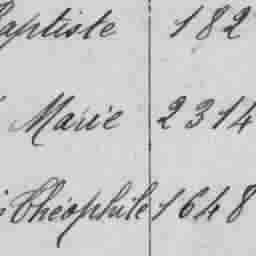 Baptiste 182
Marie 2314
Théophile 1648